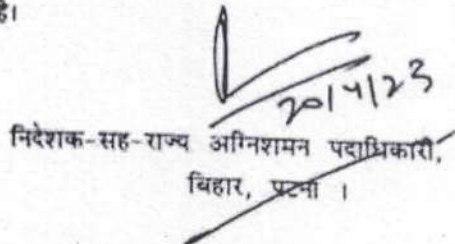 है।
20/4/23
निदेशक-सह-राज्य अग्निशमन पदाधिकारी,
बिहार, पटना ।